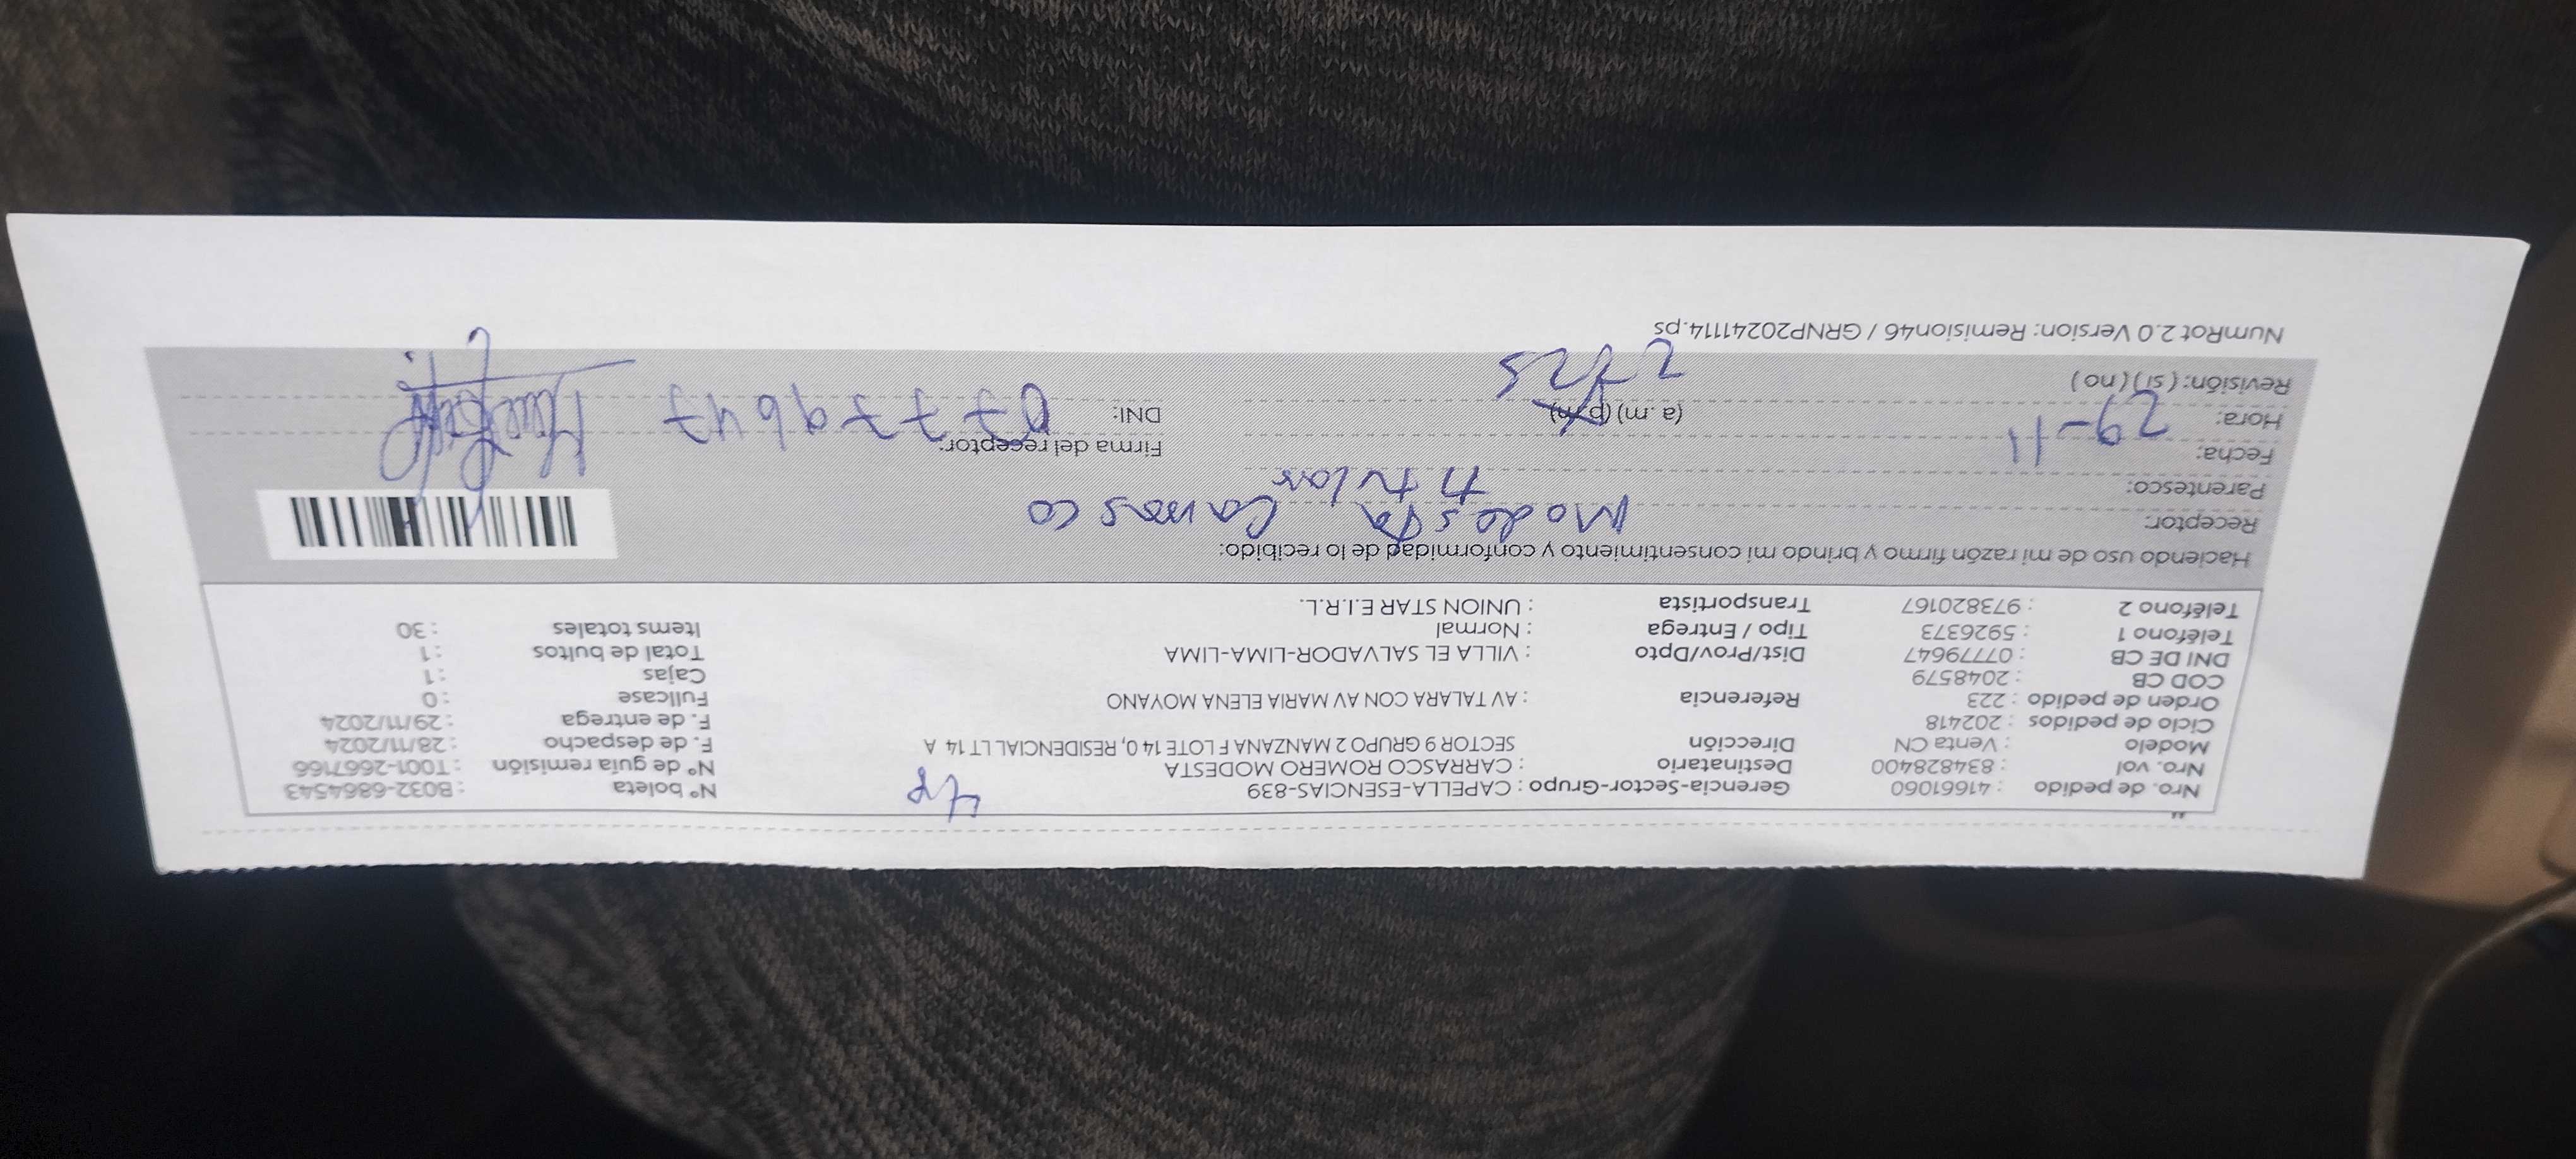 Nro. de pedido : 41661060 Gerencia-Sector-Grupo : CAPELLA-ESENCIAS-839 N° boleta : B032-6864543
Nro. vol : 834828400 Destinatario : CARRASCO ROMERO MODESTA N° de guia remisión : T001-2667166
Modelo : Venta CN Dirección SECTOR 9 GRUPO 2 MANZANA F LOTE 14 0, RESIDENCIAL LT 14 A F. de despacho : 28/11/2024
Ciclo de pedidos : 202418 F. de entrega : 29/11/2024
Orden de pedido : 223 Referencia : AV TALARA CON AV MARIA ELENA MOYANO Fullcase : 0
COD CB : 2048579 Cajas : 1
DNI DE CB : 07779647 Dist/Prov/Dpto : VILLA EL SALVADOR-LIMA-LIMA Total de bultos : 1
Teléfono 1 : 5926373 Tipo / Entrega : Normal Items totales : 30
Teléfono 2 : 973820167 Transportista : UNION STAR E.I.R.L.
Haciendo uso de mi razón firmo y brindo mi consentimiento y conformidad de lo recibido:
Receptor: Modesta Carrasco
Parentesco: titular
Fecha: 29-11 Firma del receptor:
Hora: (a.m) (p.m) DNI: 07779647
Revisión: (si) (no)
NumRot 2.0 Version: Remision46 / GRNP20241114.ps